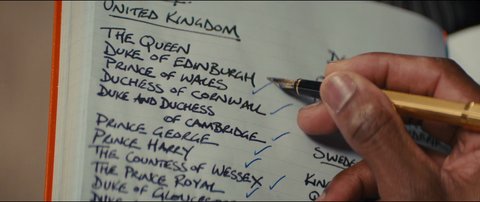 UNITED KINGDOM
THE QUEEN
DUKE OF EDINBURGH
PRINCE OF WALES
DUCHESS OF CORNWALL
DUKE AND DUCHESS
OF CAMBRIDGE
PRINCE GEORGE
PRINCE HARRY
THE COUNTESS OF WESSEX
THE PRINCE ROYAL
DUKE OF GLOUCESTER
SWEDE